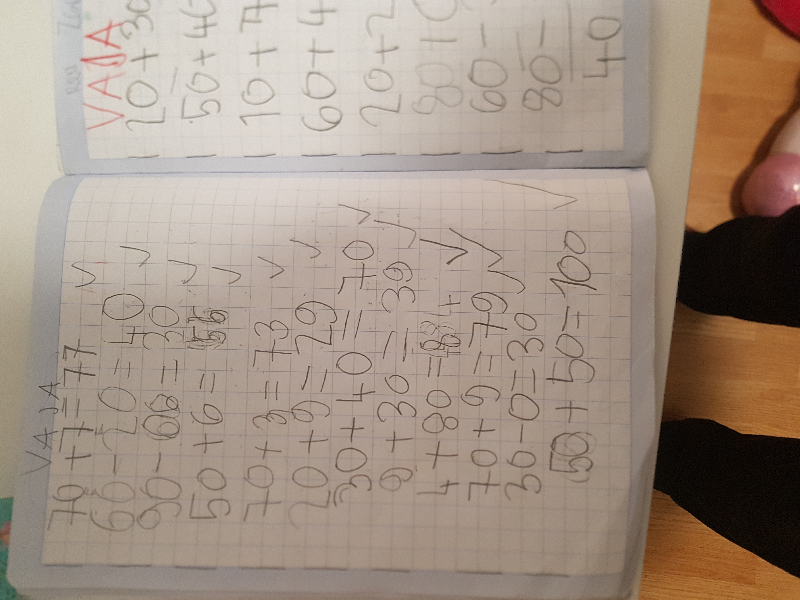 VAJA
70+7=77
60-20=40
90-60=30
50+6=56
70+3=73
20+9=29
30+40=70
9+30=39
4+80=84
70+9=79
30-0=30
50+50=100
VAJA
20+30
50+40
10+7
60+4
20+2
80+0
60-
80-
40